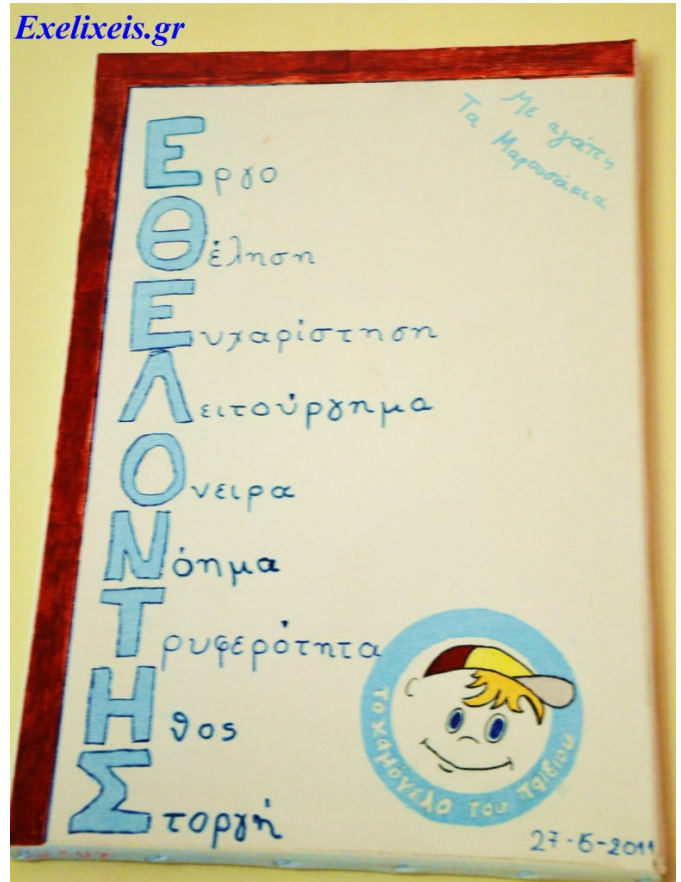 Exelixeis.gr
Με αγάπη
Τα Μαρουσάκια
Εργο
Θέληση
Ευχαρίστηση
Λειτούργημα
Ονειρα
Νόημα
Τρυφερότητα
Ηθος
Στοργή
Το χαμόγελο του παιδιού
27-5-2011